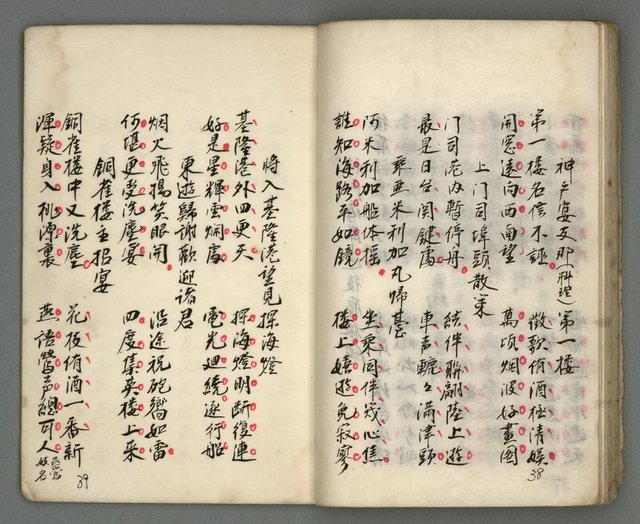 神戶宴支那(料理)第一樓
第一樓名信不誣 徵歌侑酒極清娛
開窓遠向西南望 萬頃烟波好畫圖
上门司埠頭散策
门司港內暫停舟 結伴聯翩陸上遊
最是日台関鍵處 車声轆々滿津頭
乘亜米利加丸歸臺
阿米利加船体搖 坐乘同伴幾心焦
誰知海路平如鏡 樓上嬉遊免寂寥
38
將入基隆港望見探海燈
基隆港外四更天 探海燈明断復連
好是星輝雲烟處 電光廻繞逐行船
東遊歸謝歡迎諸君
烟火飛揚笑眼開 沿途祝砲嚮如雷
何堪更惠洗塵宴 四度集英樓上來
銅雀樓主招宴
銅雀樓中又洗塵 花枝侑酒一番新
渾疑身入桃源裏 燕語鶯声總可人
燕鶯妓名
39